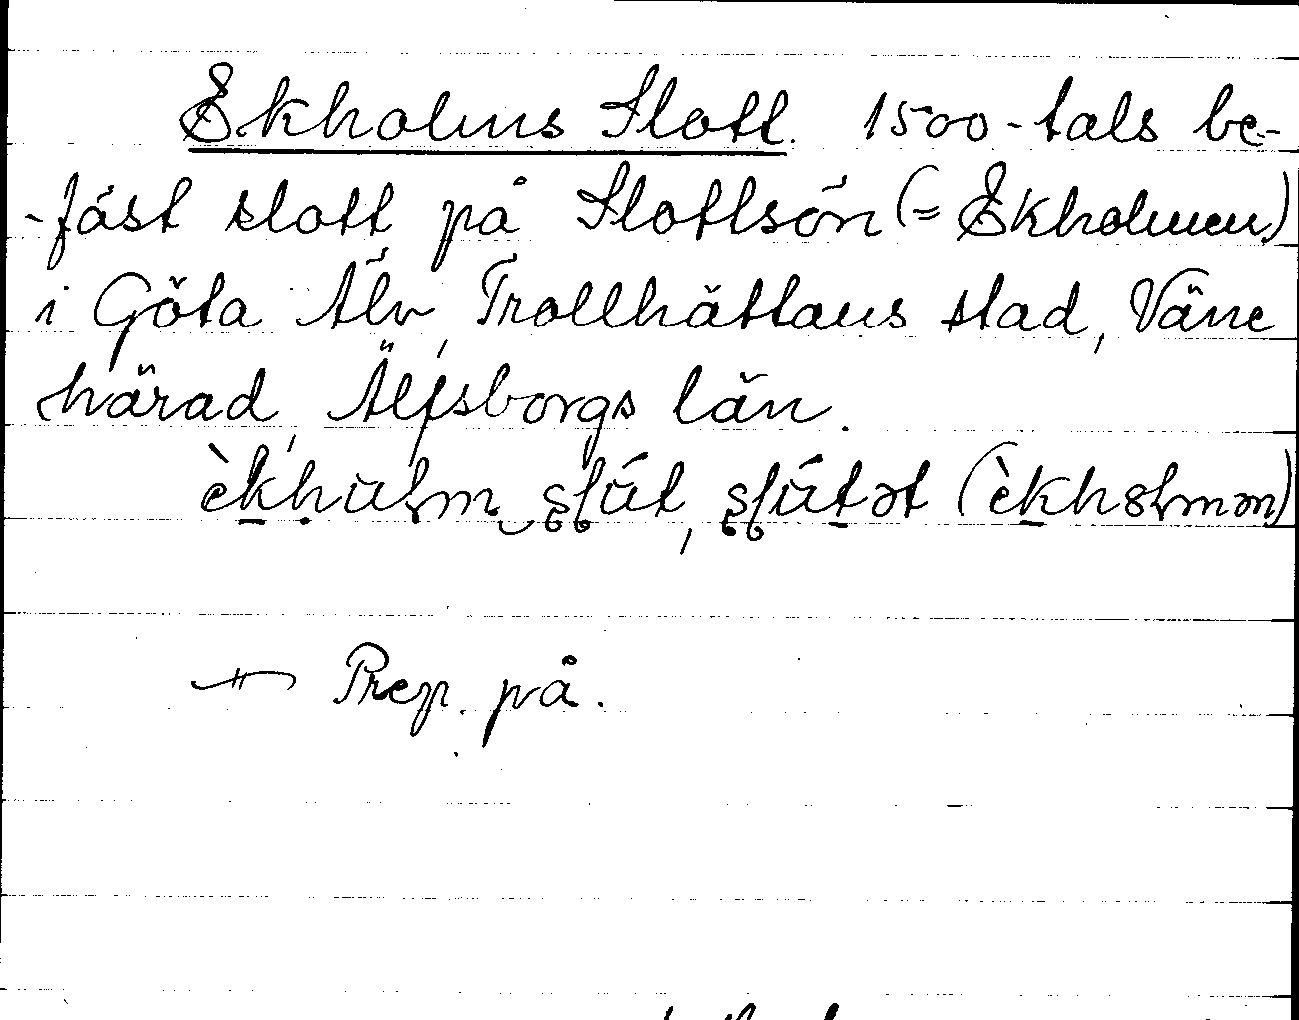 Ekholms Slott. 1500-tals be-
-fäst slott på Slottsön (= Ekholmen)
i Göta Älv, Trollhättans stad, Väne
härad, Älfsborgs län.
èkhulm slút, slútət (èkhɷlmən)
Prep. på.